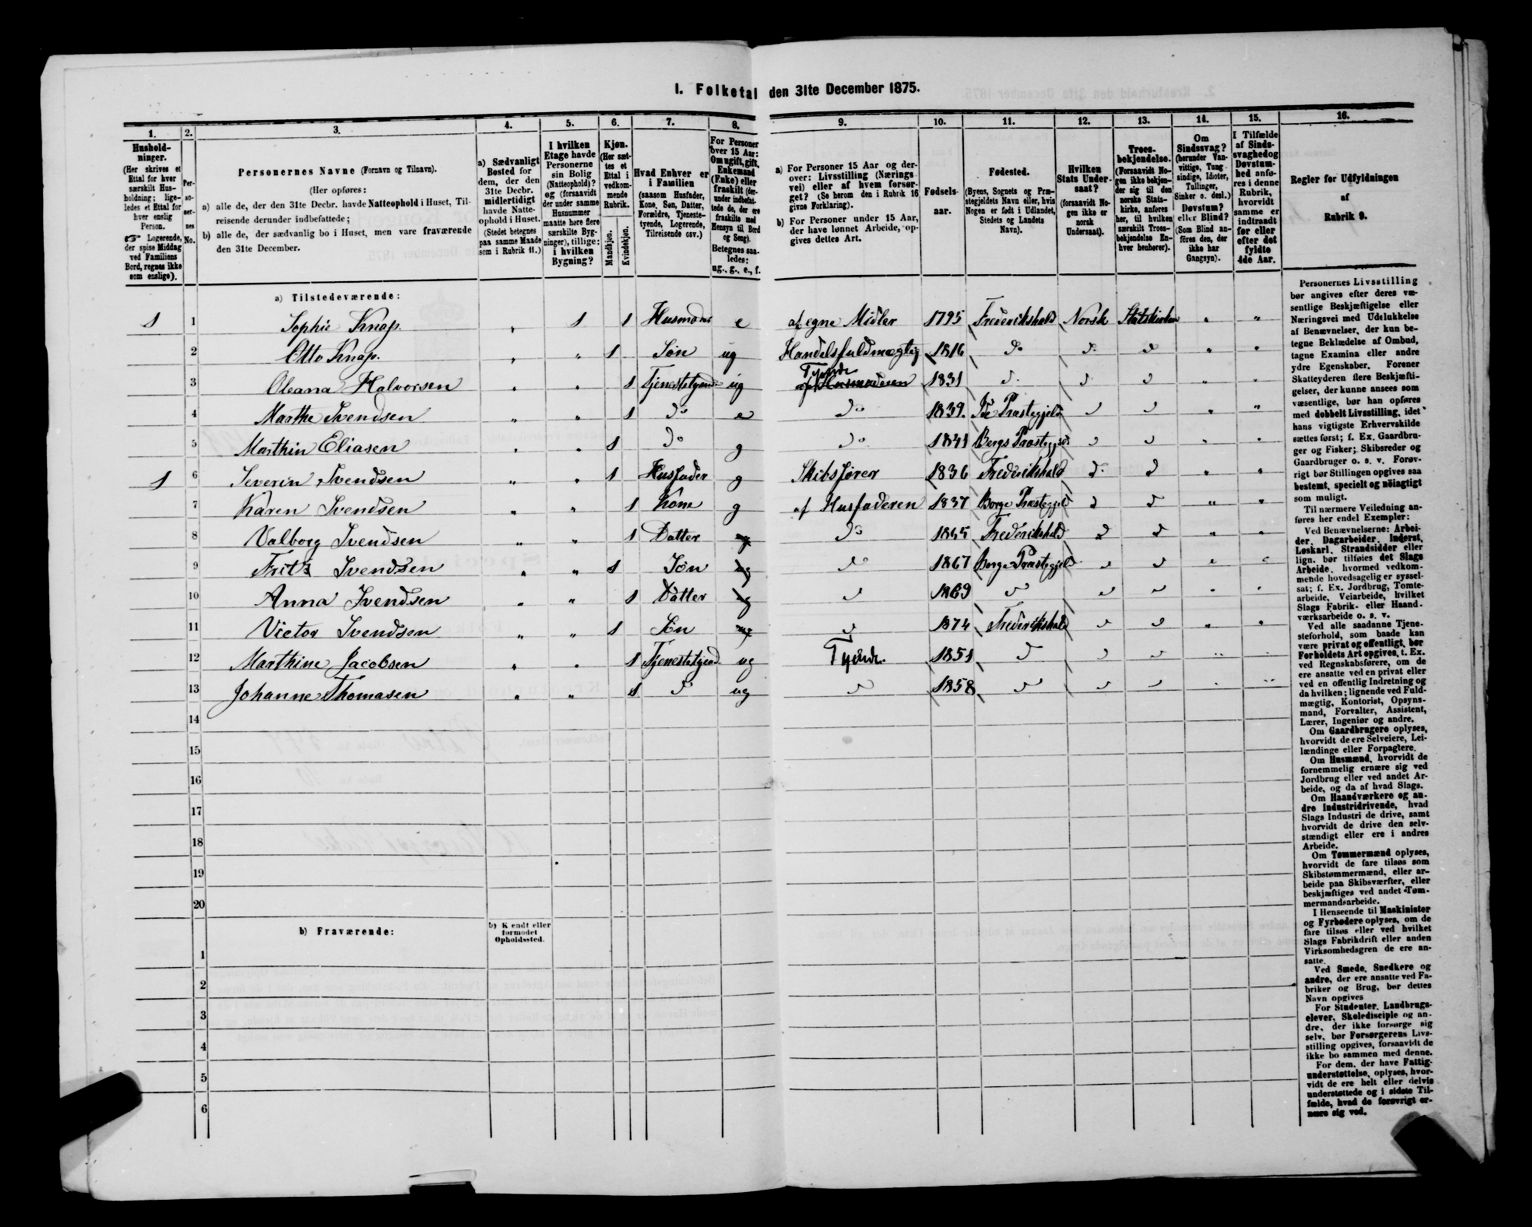 I. Folketal den 31te December 1875.
1. 2. 3. 4. 5. 6. 7. 8. 9. 10. 11. 12. 13. 14. 15. 16.
Hushold-
ninger.
(Her skrives et
Ettal for hver
særskilt Hus-
holdning; lige-
ledes et Ettal for
hver enslig
Person.
☞ Logerende,
der spise Middag
ved Familiens
Bord, regnes ikke
som enslige).
Per-
so-
ner-
nes
No.
Personernes Navne (Fornavn og Tilnavn).
(Her opføres:
a) alle de, der den 31te Decbr. havde Natteophold i Huset, Til-
reisende derunder indbefattede;
b) alle de, der sædvanlig bo i Huset, men vare fraværende
den 31te December.
a) Sædvanligt
Bosted for
dem, der den
31te Decbr.
midlertidigt
havde Natte-
ophold i Huset.
(Stedet betegnes
paa samme Maade
som i Rubrik 11.)
I hvilken
Etage havde
Personerne
sin Bolig
(Natteophold)?
og (forsaavidt
der under samme
Husnummer
maatte høre flere
særskilte Byg-
ninger), tillige:
i hvilken
Bygning?
Kjøn.
(Her sæt-
tes et
Ettal i
vedkom-
mende
Rubrik.
Mandkjøn.
Kvindekjøn.
Hvad Enhver er
i Familien
(saasom Husfader,
Kone, Søn, Datter,
Forældre, Tjeneste-
tyende, Logerende,
Tilreisende osv.)
For Personer
over 15 Aar:
Om ugift, gift,
Enkemand
(Enke) eller
fraskilt (der-
under indbefat-
tede de, der ere
fraskilte med
Hensyn til Bord
og Seng).
Betegnes saa-
ledes:
ug., g., e., f.
a) For Personer 15 Aar og der-
over: Livsstilling (Nærings-
vei) eller af hvem forsør-
get? (So herom den i Rubrik 16
givne Forklaring).
b) For Personer under 15 Aar,
der have lønnet Arbeide, op-
gives dettes Art.
Fødsels-
aar.
Fødested.
(Byens, Sognets og Præ-
stegjeldets Navn eller, hvis
Nogen er født i Udlandet,
Stedets og Landets
Navn).
Hvilken
Stats Under-
saat?
(forsaavidt No-
gen ikke er
norsk
Undersaat).
Troes-
bekjendelse.
(Forsaavidt No-
gen ikke bekjen-
der sig til den
norske Stats-
kirke, anføres
her, til hvilken
særskilt Troes-
bekjendelse En-
hver henhører).
Om
Sindssvag?
(herunder Van-
vittige, Tung-
sindige, Idioter,
Tullinger,
Sinker o. desl.)
Døvstum?
eller Blind?
(Som Blind an-
føres den, der
ikke har
Gangsyn).
I Tilfælde
af Sinds-
svaghed og
Døvstum-
hed anfø-
res i denne
Rubrik,
hvorvidt
samme er
indtraadt
før eller
efter det
fyldte
4de Aar.
Regler for Udfyldningen
af
Rubrik 9.
a) Tilstedeværende:
1 1 Sophie Knap. „ 1 1 Husmoder e af egne Midler 1795 Frederikshald Norsk Statskirken „ „
2 Otto Knap. „ „ 1 Søn ug Handelsfuldmægtig 1816 do d. d „ „
3 Oleana Halvorsen „ „ 1 Tjenestetyende ug Tyende 1831 d. d. d „ „
4 Marthe Svendsen „ „ 1 do e do 1839. Ide Præstegjeld d d „ „
5 Marthin Eliasen „ „ 1 do g do 1841 Bergs Præstegjeld d d „ „
1 6 Severin Svendsen „ „ 1 Husfader g Skibsfører 1836 Frederikshald d. d „ „
7 Karen Svendsen „ „ 1 Kone g af Husfaderen 1837 Borge Præstegjeld d d „ „
8 Valborg Svendsen „ „ 1 Datter ug do 1865 Frederikshald d d „ „
9 Fritz Svendsen „ „ 1 Søn ug do 1867 Borge Præstegjeld d d „ „
10 Anna Svendsen „ „ 1 Datter ug d 1869 d d d „ „
11 Victor Svendsen „ „ 1 Søn ug d 1874 Frederikshald d d „ „
12 Marthine Jacobsen „ „ 1 Tjenestetyend ug Tyende. 1851 d d d „ „
13 Johanne Thomasen „ „ 1 d ug d 1858 d d d „ „
14
15
16
17
18
19
20
b) Fraværende:
b) Kendt eller
formodet
Opholdssted.
1
2
3
4
5
6
Personernes Livsstilling
bør angives efter deres væ-
sentlige Beskjæftigelse eller
Næringsvei med Udelukkelse
af Benævnelser, der kun be-
tegne Beklædelse af Ombud,
tagne Examina eller andre
ydre Egenskaber. Forener
Skatteyderen flere Beskjæfti-
gelser, der kunne ansees som
væsentlige, bør han opføres
med dobbelt Livsstilling, idet
hans vigtigste Erhvervskilde
sættes først; f. Ex. Gaardbru-
ger og Fisker; Skibsreder og
Gaardbruger o. s. v. Forøv-
rigt bør Stillingen opgives saa
bestemt, specielt og nøiagtigt
som muligt.
Til nærmere Veiledning an-
føres her endel Exempler:
Ved Benævnelserne: Arbei-
der, Dagarbeider, Inderst,
Løskarl, Strandsidder eller
lign. bør tilføies det Slags
Arbeide, hvormed vedkom-
mende hovedsagelig er syssel-
sat; f. Ex. Jordbrug, Tomte-
arbeide, Veiarbeide, hvilket
Slags Fabrik- eller Haand-
værksarbeide o. s. v.
Ved alle saadanne Tjene-
steforhold, som baade kan
være privat og offentligt, bør
Forholdets Art opgives, f. Ex.
ved Regnskabsførere, om de
ere ansatte ved en privat eller
ved en offentlig Indretning og
da hvilken; lignende ved Fuld-
mægtig, Kontorist, Opsyns-
mand, Forvalter, Assistent,
Lærer, Ingeniør og andre.
Om Gaardbrugere oplyses,
hvorvidt de ere Selveiere, Lei-
lændinge eller Forpagtere.
Om Husmænd, hvorvidt de
fornemmelig ernære sig ved
Jordbrug eller ved andet Ar-
beide, og da af hvad Slags.
Om Haandværkere og an-
dre Industridrivende, hvad
Slags Industri de drive, samt
hvorvidt de drive den selv-
stændigt eller ere i andres
Arbeide.
Om Tømmermænd oplyses,
hvorvidt de fare tilsøs som
Skibstømmermænd, eller ar-
beide paa Skibsværfter, eller
beskjæftiges ved andet Tøm-
mermandsarbeide.
I Henseende til Maskinister
og Fyrbødere oplyses, om de
fare tilsøs eller ved hvilket
Slags Fabrikdrift eller anden
Virksomhedsgren de ere an-
satte.
Ved Smede, Snedkere og
andre, der ere ansatte ved Fa-
briker og Brug, bør dettes
Navn opgives
For Studenter, Landbrugs-
elever, Skoledisciple og an-
dre, der ikke forsørge sig
selv, bør Forsørgerens Livs-
stilling opgives, forsaavidt de
ikke bo sammen med denne.
For dem, der have Fattig-
understøttelse, oplyses, hvor-
vidt de ere helt eller delvis
understøttede og i sidste Til-
fælde, hvad de forøvrigt er-
nære sig ved.